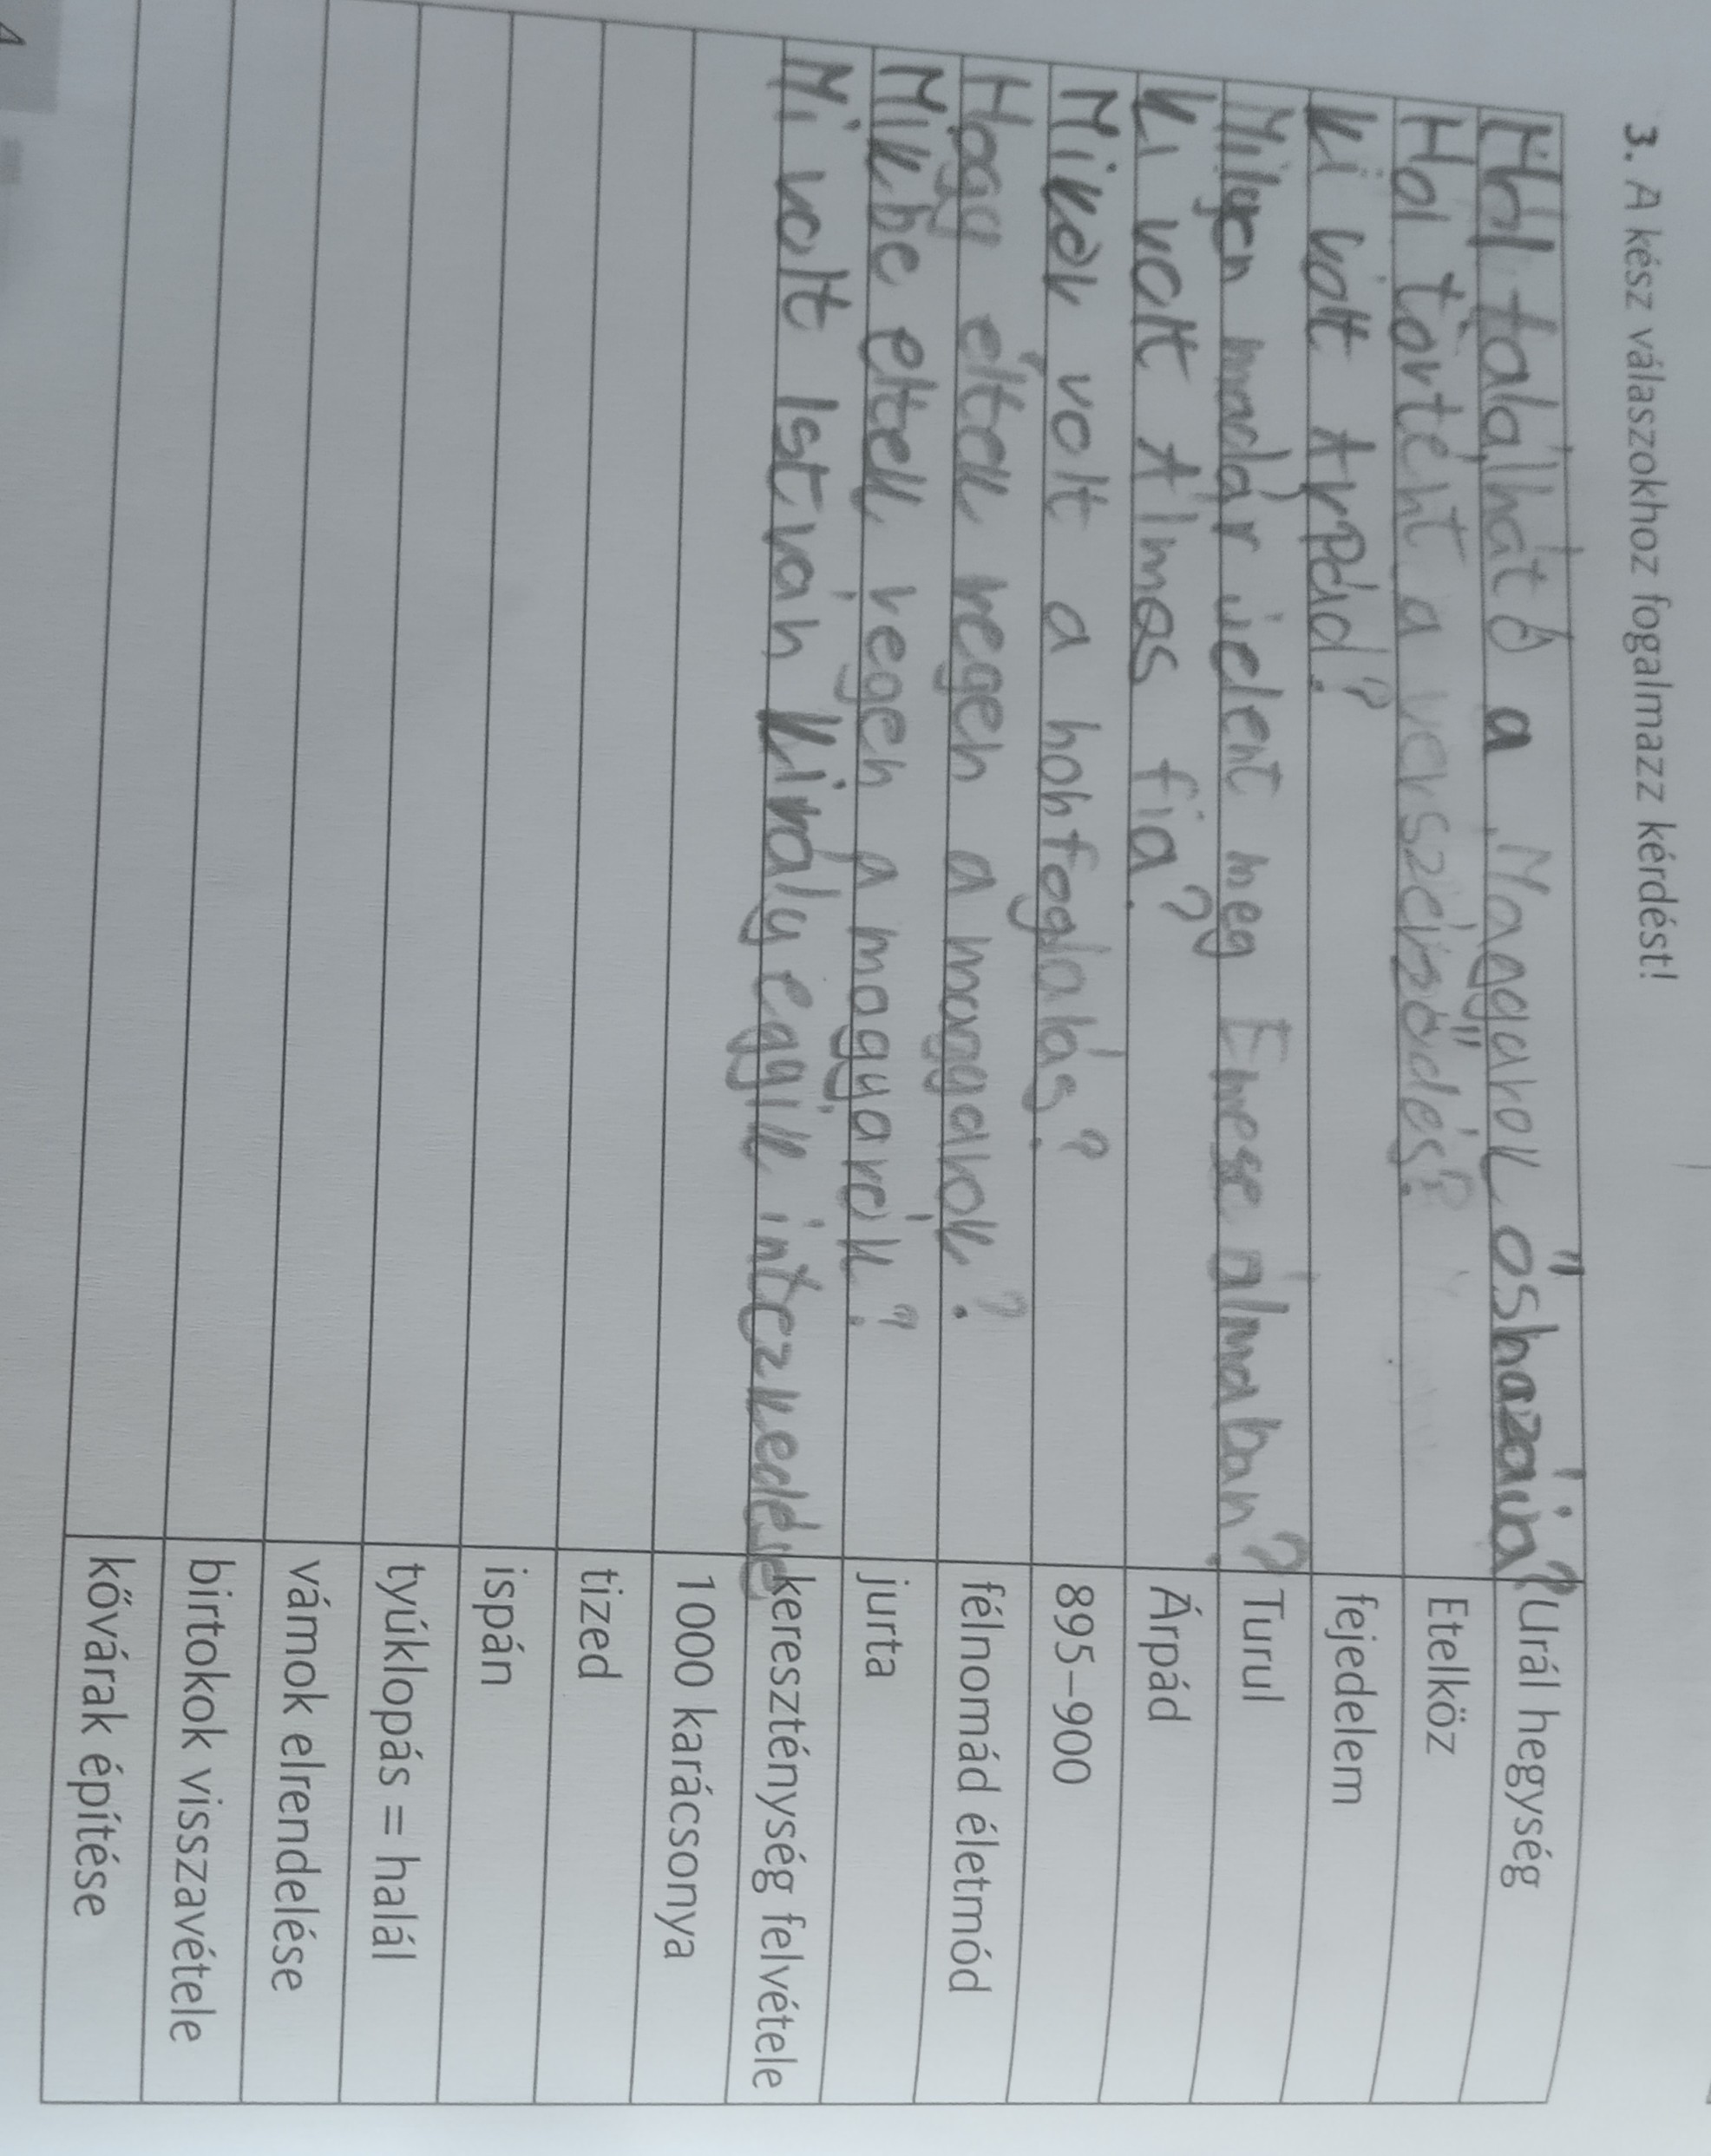 3. A kész válaszokhoz fogalmazz kérdést!
Hol található a Magyarok őshazája? Urál hegység
Hol történt a vérszerződés? Etelköz
Ki volt Árpád? fejedelem
Milyen madár jelent meg Emese álmában? Turul
Ki volt Álmos fia? Árpád
Mikor volt a honfoglalás? 895–900
Hogy éltek régen a magyarok? félnomád életmód
Mikbe éltek régen a magyarok? jurta
Mi volt István király eggik intézkedése kereszténység felvétele
1000 karácsonya
tized
ispán
tyúklopás = halál
vámok elrendelése
birtokok visszavétele
kővárak építése